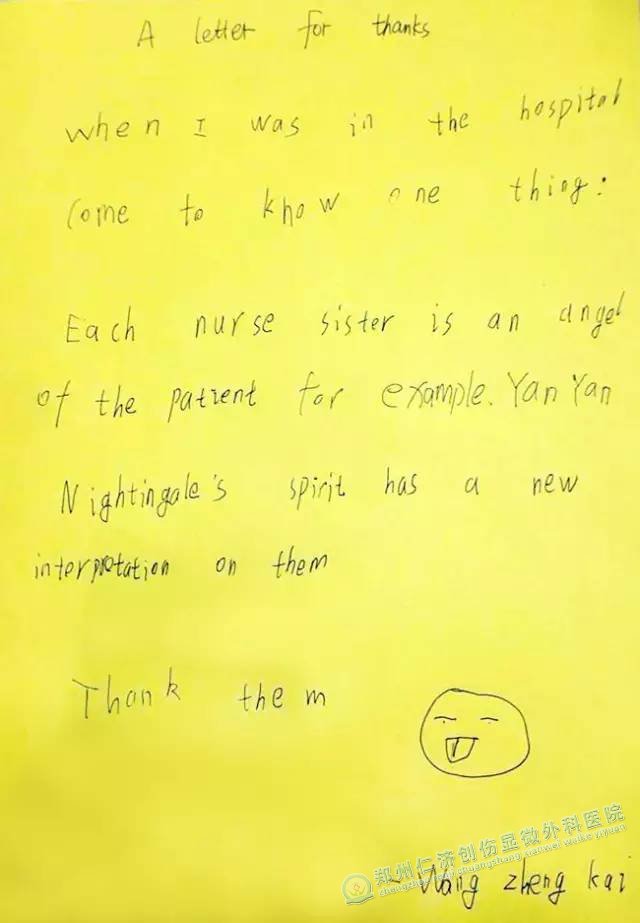 A letter for thanks
when I was in the hospital
Come to know one thing:
Each nurse sister is an angel
of the patient for example. Yan Yan
Nightingale's spirit has a new
interpretation on them
Thank them
郑州仁济创伤显微外科医院
zhengzhou renji chuangshang xianwei waike yiyuan
- Wang zheng kai